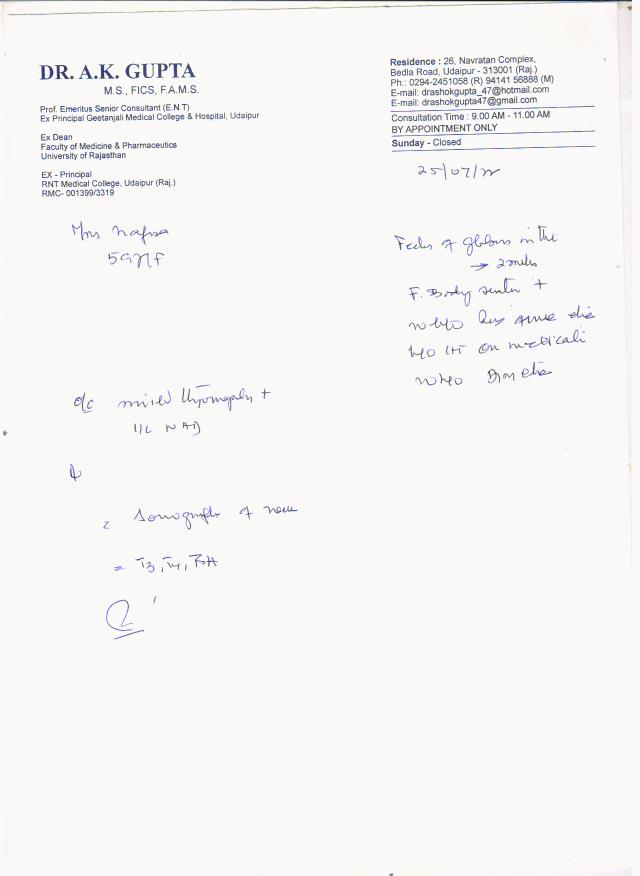 DR. A.K. GUPTA
M.S., FICS, F.A.M.S.
Prof. Emeritus Senior Consultant (E.N.T)
Ex Principal Geetanjali Medical College & Hospital, Udaipur
Ex Dean
Faculty of Medicine & Pharmaceutics
University of Rajasthan
EX - Principal
RNT Medical College, Udaipur (Raj.)
RMC- 001399/3319
Residence : 26, Navratan Complex,
Bedla Road, Udaipur - 313001 (Raj.)
Ph.: 0294-2451058 (R) 94141 56888 (M)
E-mail: drashokgupta_47@hotmail.com
E-mail: drashokgupta47@gmail.com
Consultation Time : 9.00 AM - 11.00 AM
BY APPOINTMENT ONLY
Sunday - Closed
25/07/22
Mrs
59 F
of in the
→ 2
F. Body +
H/O HT on
O/E +
NAD
Sonography of
= T3, T4, TSH